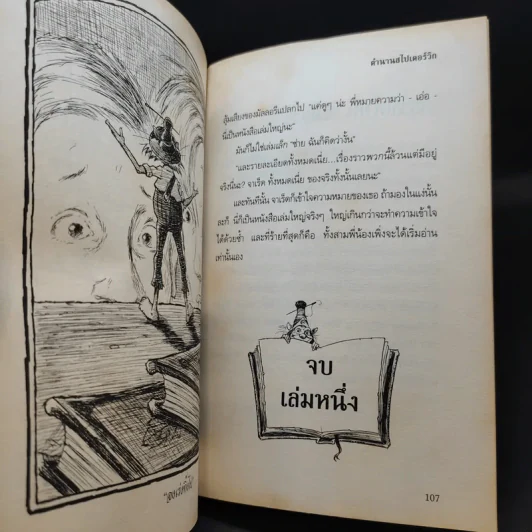 ตำนานสไปเดอร์วิก
สุ้มเสียงของมัลลอรีแปลกไป "แค่ดูๆ น่ะ พี่หมายความว่า - เอ่อ -
นี่เป็นหนังสือเล่มใหญ่นะ"
มันก็ไม่ใช่เล่มเล็ก "ช่าย ฉันก็คิดว่างั้น"
"และรายละเอียดทั้งหมดเนี่ย...เรื่องราวพวกนี้ล้วนแต่มีอยู่
จริงงั้นนะ? จาเร็ด ทั้งหมดเนี่ย ของจริงทั้งนั้นเลยนะ"
และทันทีนั้น จาเร็ดก็เข้าใจความหมายของเธอ ถ้ามองในแง่นั้น
ละก็ นี่ก็เป็นหนังสือเล่มใหญ่จริงๆ ใหญ่เกินกว่าจะทำความเข้าใจ
ได้ด้วยซ้ำ และที่ร้ายที่สุดก็คือ ทั้งสามพี่น้องเพิ่งจะได้เริ่มอ่าน
เท่านั้นเอง
จบ
เล่มหนึ่ง
107